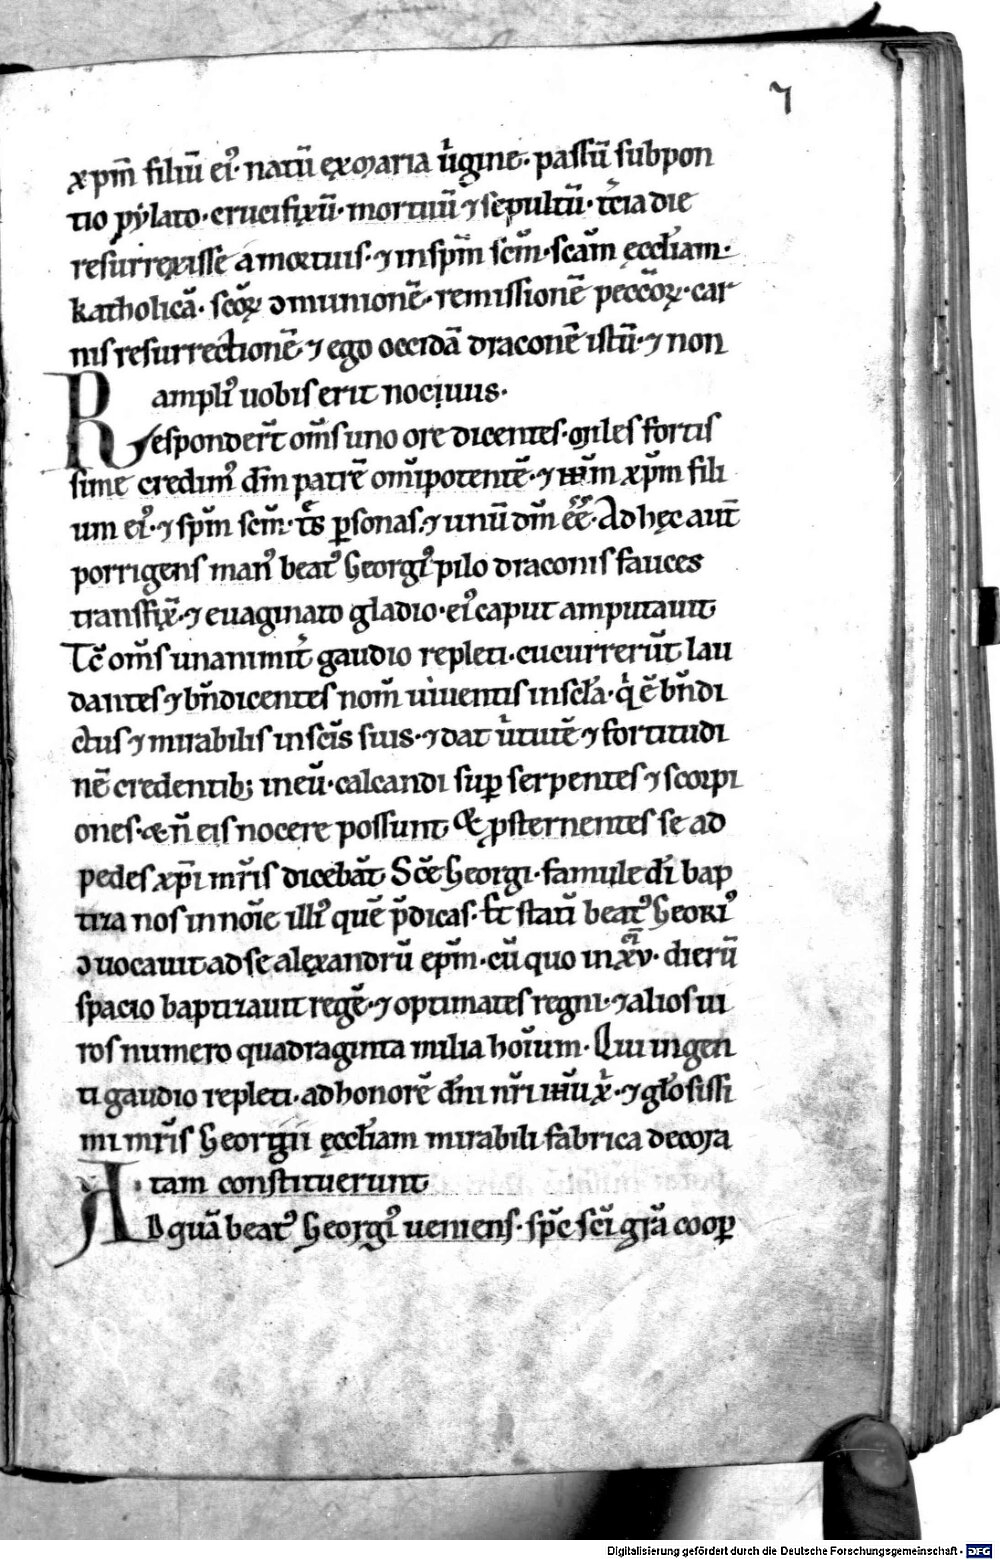 7
xp̄m filiū ei᷒· natū ex maria ỽgine· passū subpon
tio pẏlato· crucifixū· mortuū ⁊ sepultū· t̄cia die
resurrexisse a mortuis· ⁊ in sp̄m sc̄m· sc̄am ęccl̄iam·
katholicā· sc̄oꝝ ↄmunionē· remissionē pecc̄oꝝ· car
nis resurrectionē ⁊ ego occidā draconē istū· ⁊ non
ampli᷒ uobis erit nociuus·
Respondert̄ om̄s uno ore dicentes· miles fortis
sime credim᷒ dm̄ patrē om̄ipotentē· ⁊ ihm̄ xp̄m fili
um ei᷒· ⁊ sp̄m sc̄m· t̄s ꝑsonas· ⁊ unū dm̄ ēē· Ad hęc aut̄
porrigens man᷒ beat᷒ Georgi᷒ pilo draconis fauces
transfix̄· ⁊ euaginato gladio· ei᷒ caput amputauit
Tc̄ om̄s unanimit̄ gaudio repleti· cucurrerūt lau
dantes ⁊ bn̄dicentes nom̄ uiuentis in scl̄a· qͥ ē bn̄di
ctus ⁊ mirabilis in scīs suis· ⁊ dat ỽtutē ⁊ fortitudi
nē credentib; in eū· calcandi suꝑ serpentes ⁊ scorpi
ones· & n̄ eis nocere possunt & ꝓsternentes se ad
pedes xp̄i mr̄is dicebāt Sc̄e Georgi· famule dī bap
tiza nos in noīe illi᷒ quē p̄dicas· Et statī beat᷒ Geori᷒
ↄuocauit ad se alexandrū ep̄m· cū quo in xv· dierū
spacio baptizauit regē· ⁊ optimates regni· ⁊ alios ui
ros numero quadraginta milia hoīum· Qui ingen
ti gaudio repleti· ad honorē dn̄i nr̄i ihū x̄· ⁊ gl̄osissi
mi mr̄is Georgii ęccl̄iam mirabili fabrica decora
tam constituerunt
AD quā beat᷒ Georgi᷒ ueniens· sp̄c sc̄i gr̄a cooꝑ
Digitalisierung gefördert durch die Deutsche Forschungsgemeinschaft - DFG